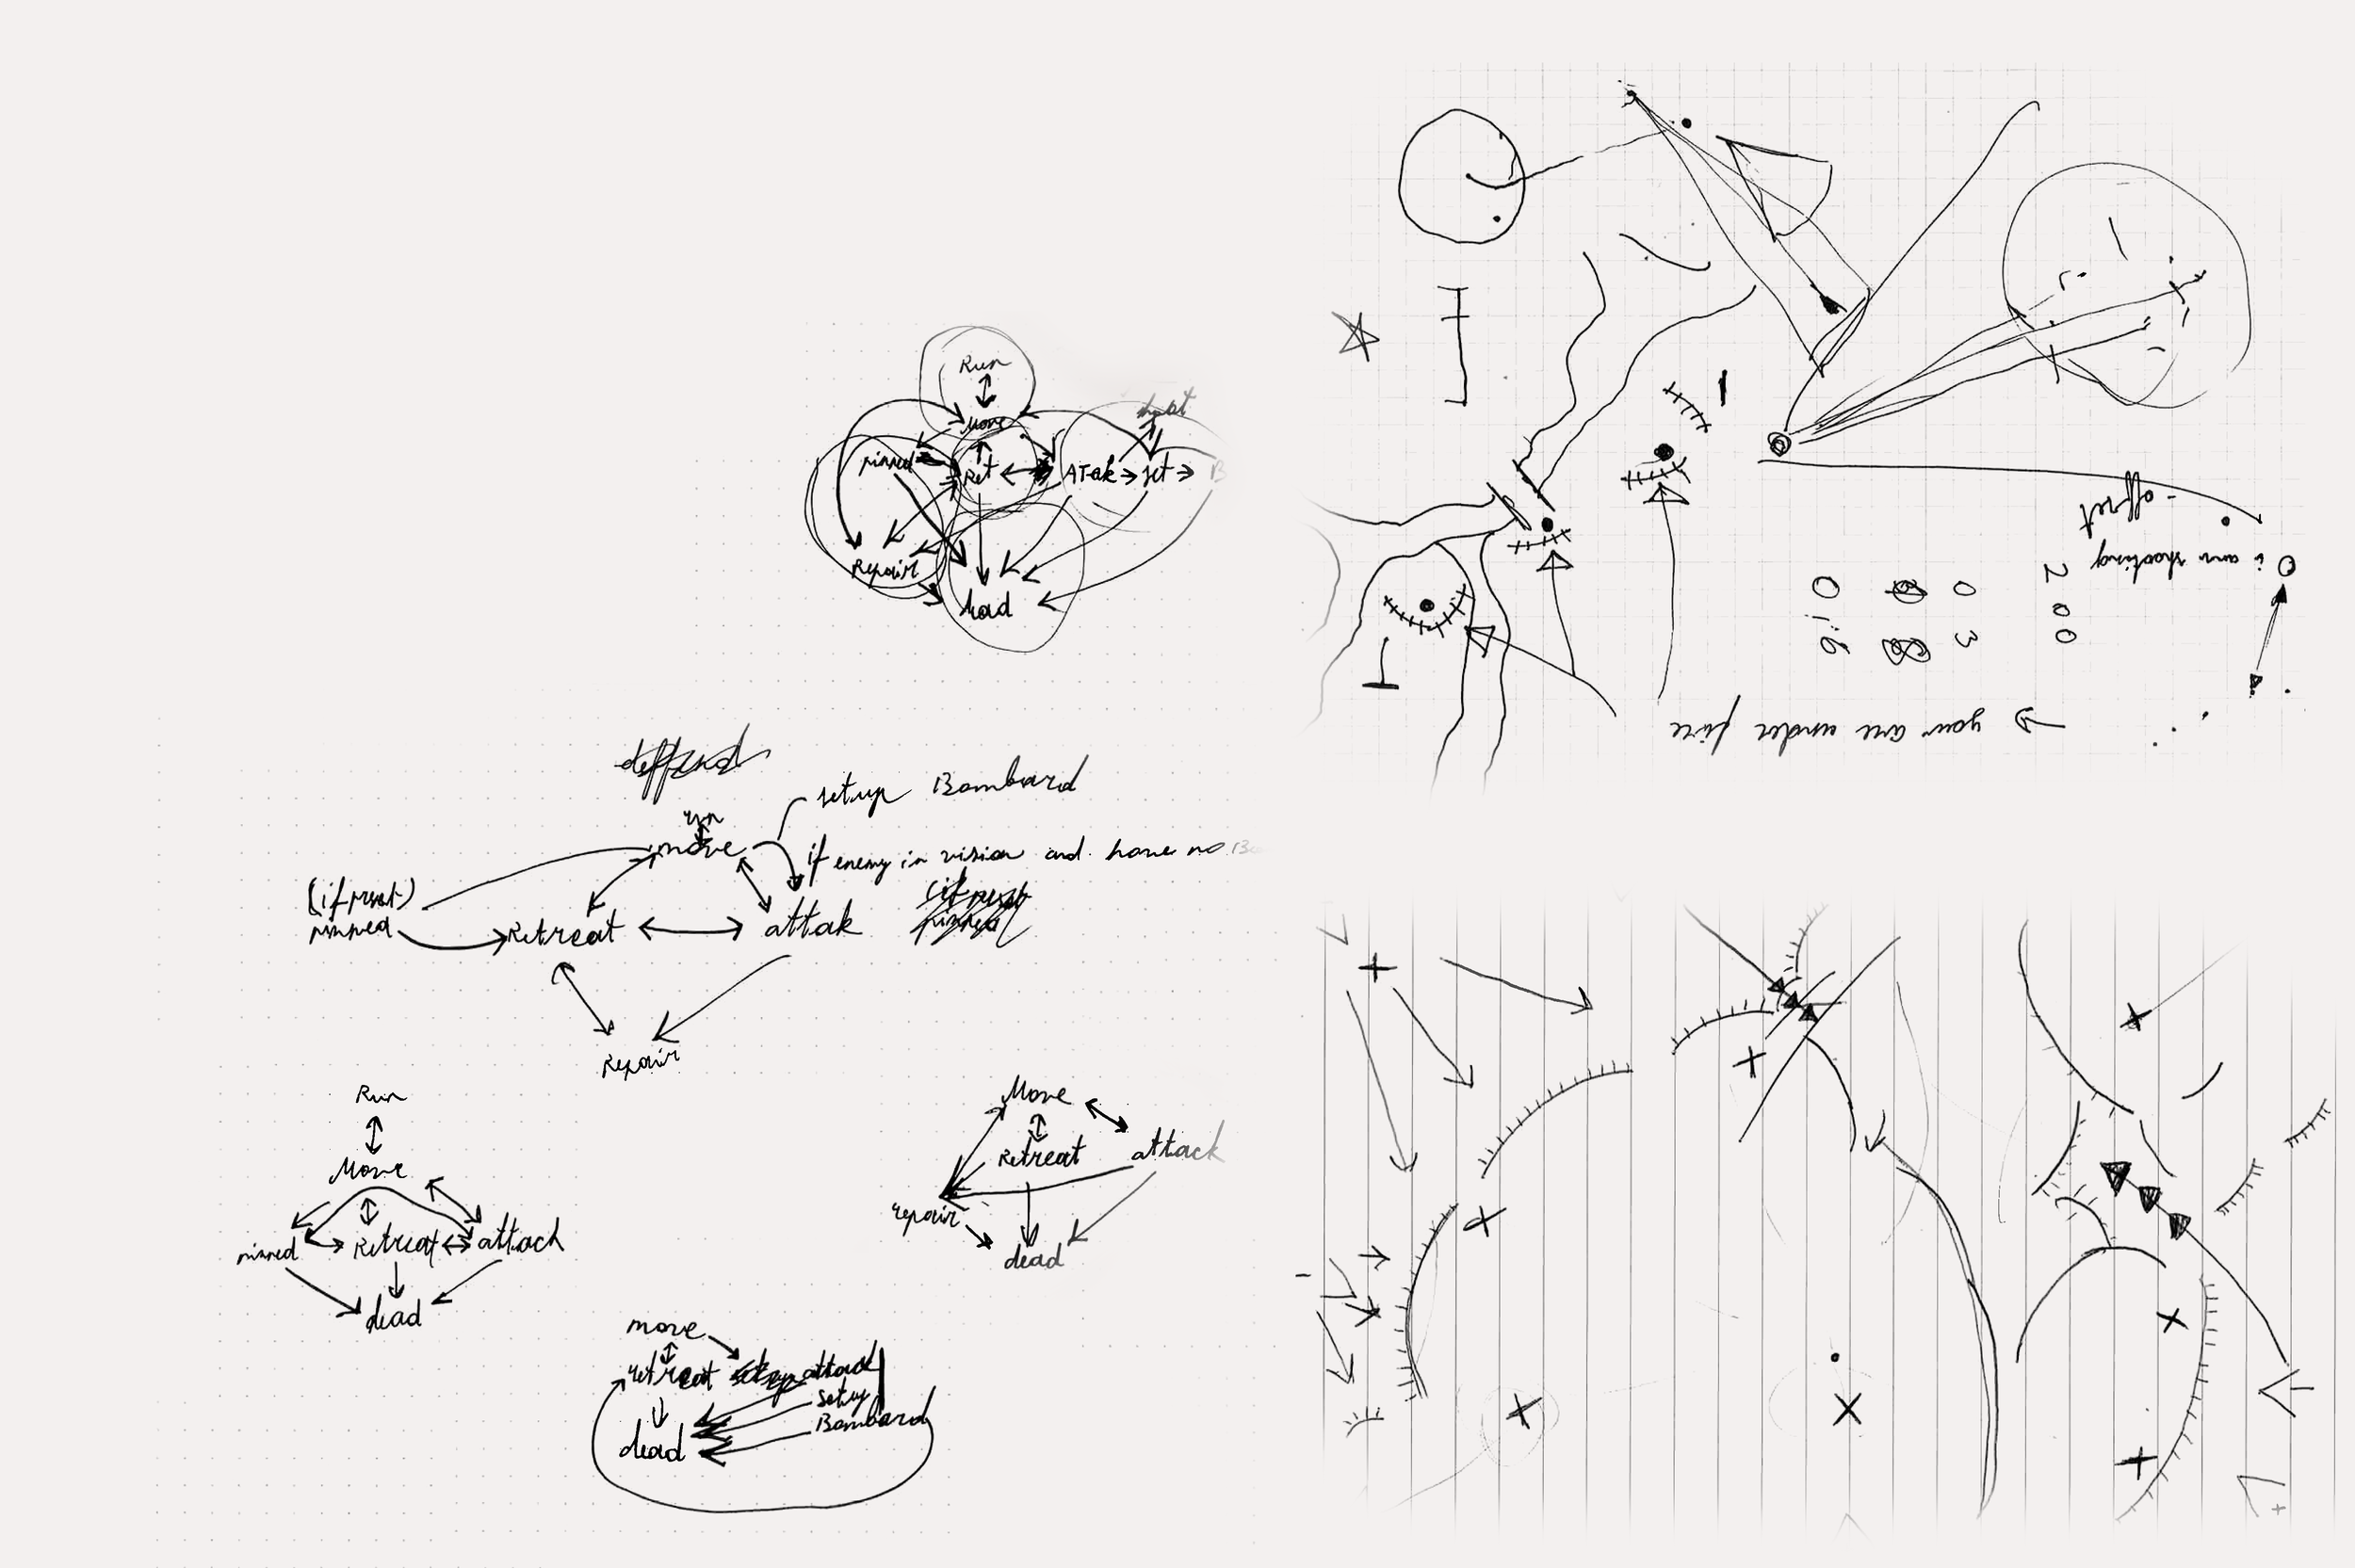 Run
Move
pinned Ret ATak set B
Repair
dead
run
move
setup Bombard
if enemy in vision and have no
pinned
Retreat attak
Repair
Run
Move
pinned Retreat attack
dead
Move
Retreat attack
repair
dead
move
retreat attack
setup
Bombard
dead
- offset
i am shooting
you are under fire